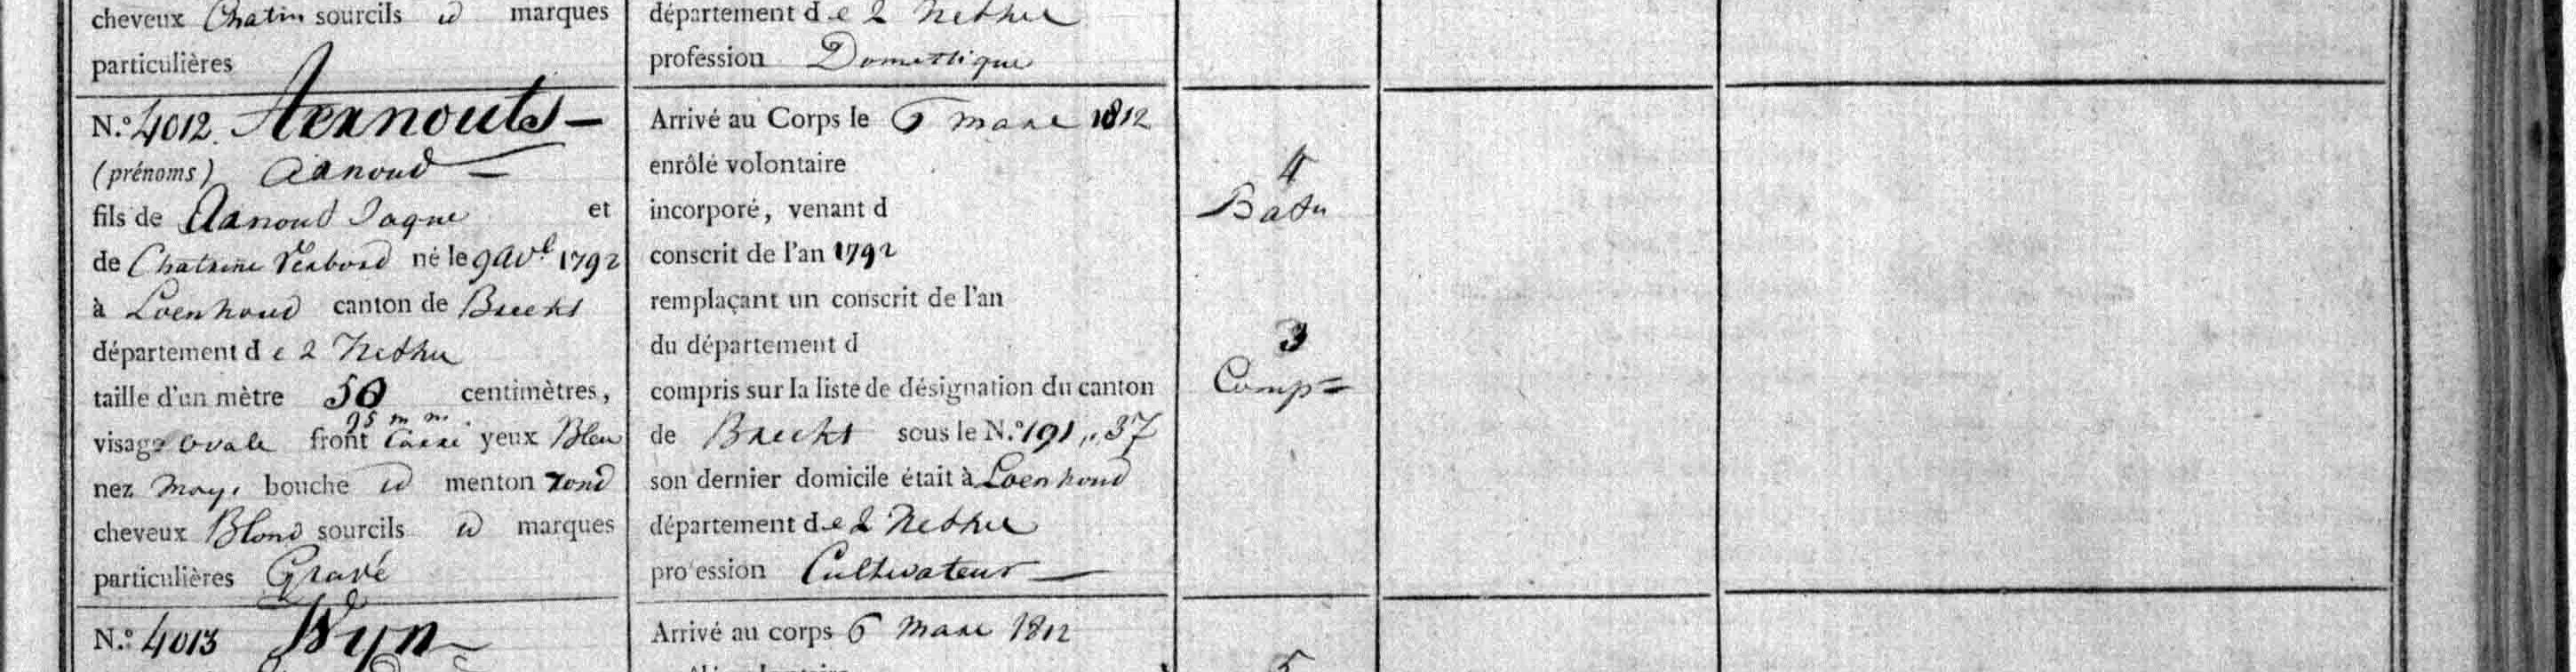 cheveux Chatin sourcils id marques
particulières
département de 2 Nethe
profession Domestique
N.º 4012. Aernouts
(prénoms) Arnoud
fils de Arnoud Jaque et
de Chatrine Verbord né le 9 Avl 1792
à Loenhoud canton de Brecht
département de 2 Nethe
taille d'un mètre 50 centimètres,
95 m m.
visage ovale front Carré yeux Bleu
nez moy. bouche id menton rond
cheveux Blond sourcils id marques
particulières Gravé
Arrivé au Corps le 6 mars 1812
enrôlé volontaire
incorporé, venant d
conscrit de l'an 1792
remplaçant un conscrit de l'an
du département d
compris sur la liste de désignation du canton
de Brecht sous le N.º 191 ,, 37
son dernier domicile était à Loenhoud
département de 2 Nethe
profession Cultivateur
4
Batn
3
Comp=
N.º 4013 Wyn
Arrivé au corps 6 mars 1812
5